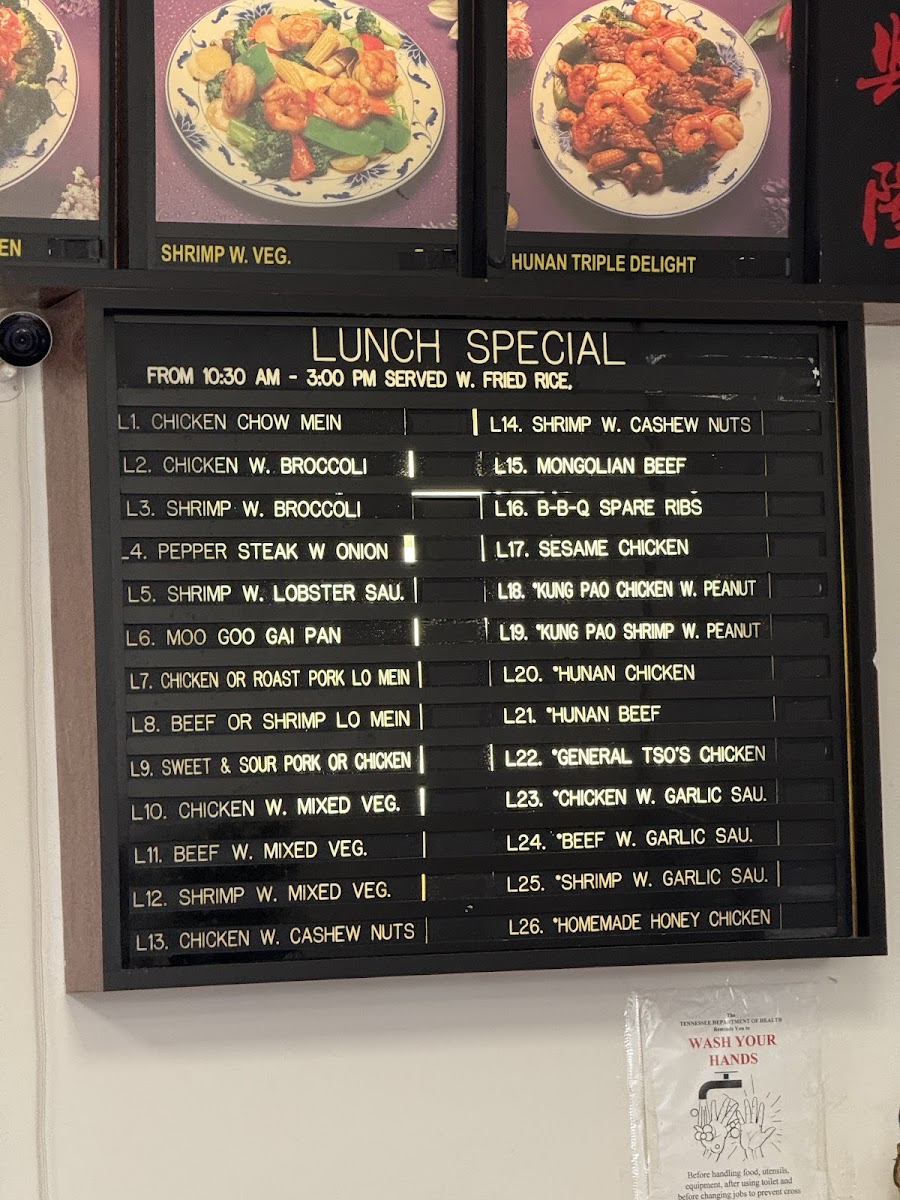 EN
SHRIMP W. VEG.
HUNAN TRIPLE DELIGHT
興
隆
LUNCH SPECIAL
FROM 10:30 AM - 3:00 PM SERVED W. FRIED RICE.
L1. CHICKEN CHOW MEIN
L2. CHICKEN W. BROCCOLI
L3. SHRIMP W. BROCCOLI
L4. PEPPER STEAK W ONION
L5. SHRIMP W. LOBSTER SAU.
L6. MOO GOO GAI PAN
L7. CHICKEN OR ROAST PORK LO MEIN
L8. BEEF OR SHRIMP LO MEIN
L9. SWEET & SOUR PORK OR CHICKEN
L10. CHICKEN W. MIXED VEG.
L11. BEEF W. MIXED VEG.
L12. SHRIMP W. MIXED VEG.
L13. CHICKEN W. CASHEW NUTS
L14. SHRIMP W. CASHEW NUTS
L15. MONGOLIAN BEEF
L16. B-B-Q SPARE RIBS
L17. SESAME CHICKEN
L18. *KUNG PAO CHICKEN W. PEANUT
L19. *KUNG PAO SHRIMP W. PEANUT
L20. *HUNAN CHICKEN
L21. *HUNAN BEEF
L22. *GENERAL TSO'S CHICKEN
L23. *CHICKEN W. GARLIC SAU.
L24. *BEEF W. GARLIC SAU.
L25. *SHRIMP W. GARLIC SAU.
L26. *HOMEMADE HONEY CHICKEN
The
TENNESSEE DEPARTMENT OF HEALTH
Reminds You to
WASH YOUR
HANDS
Before handling food, utensils,
equipment, after using toilet and
before changing jobs to prevent cross